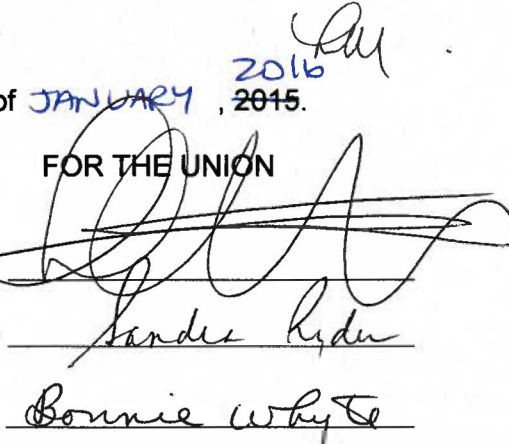 2016
of JANUARY , 2015.
FOR THE UNION
Sandra Ryder
Bonnie Whyte